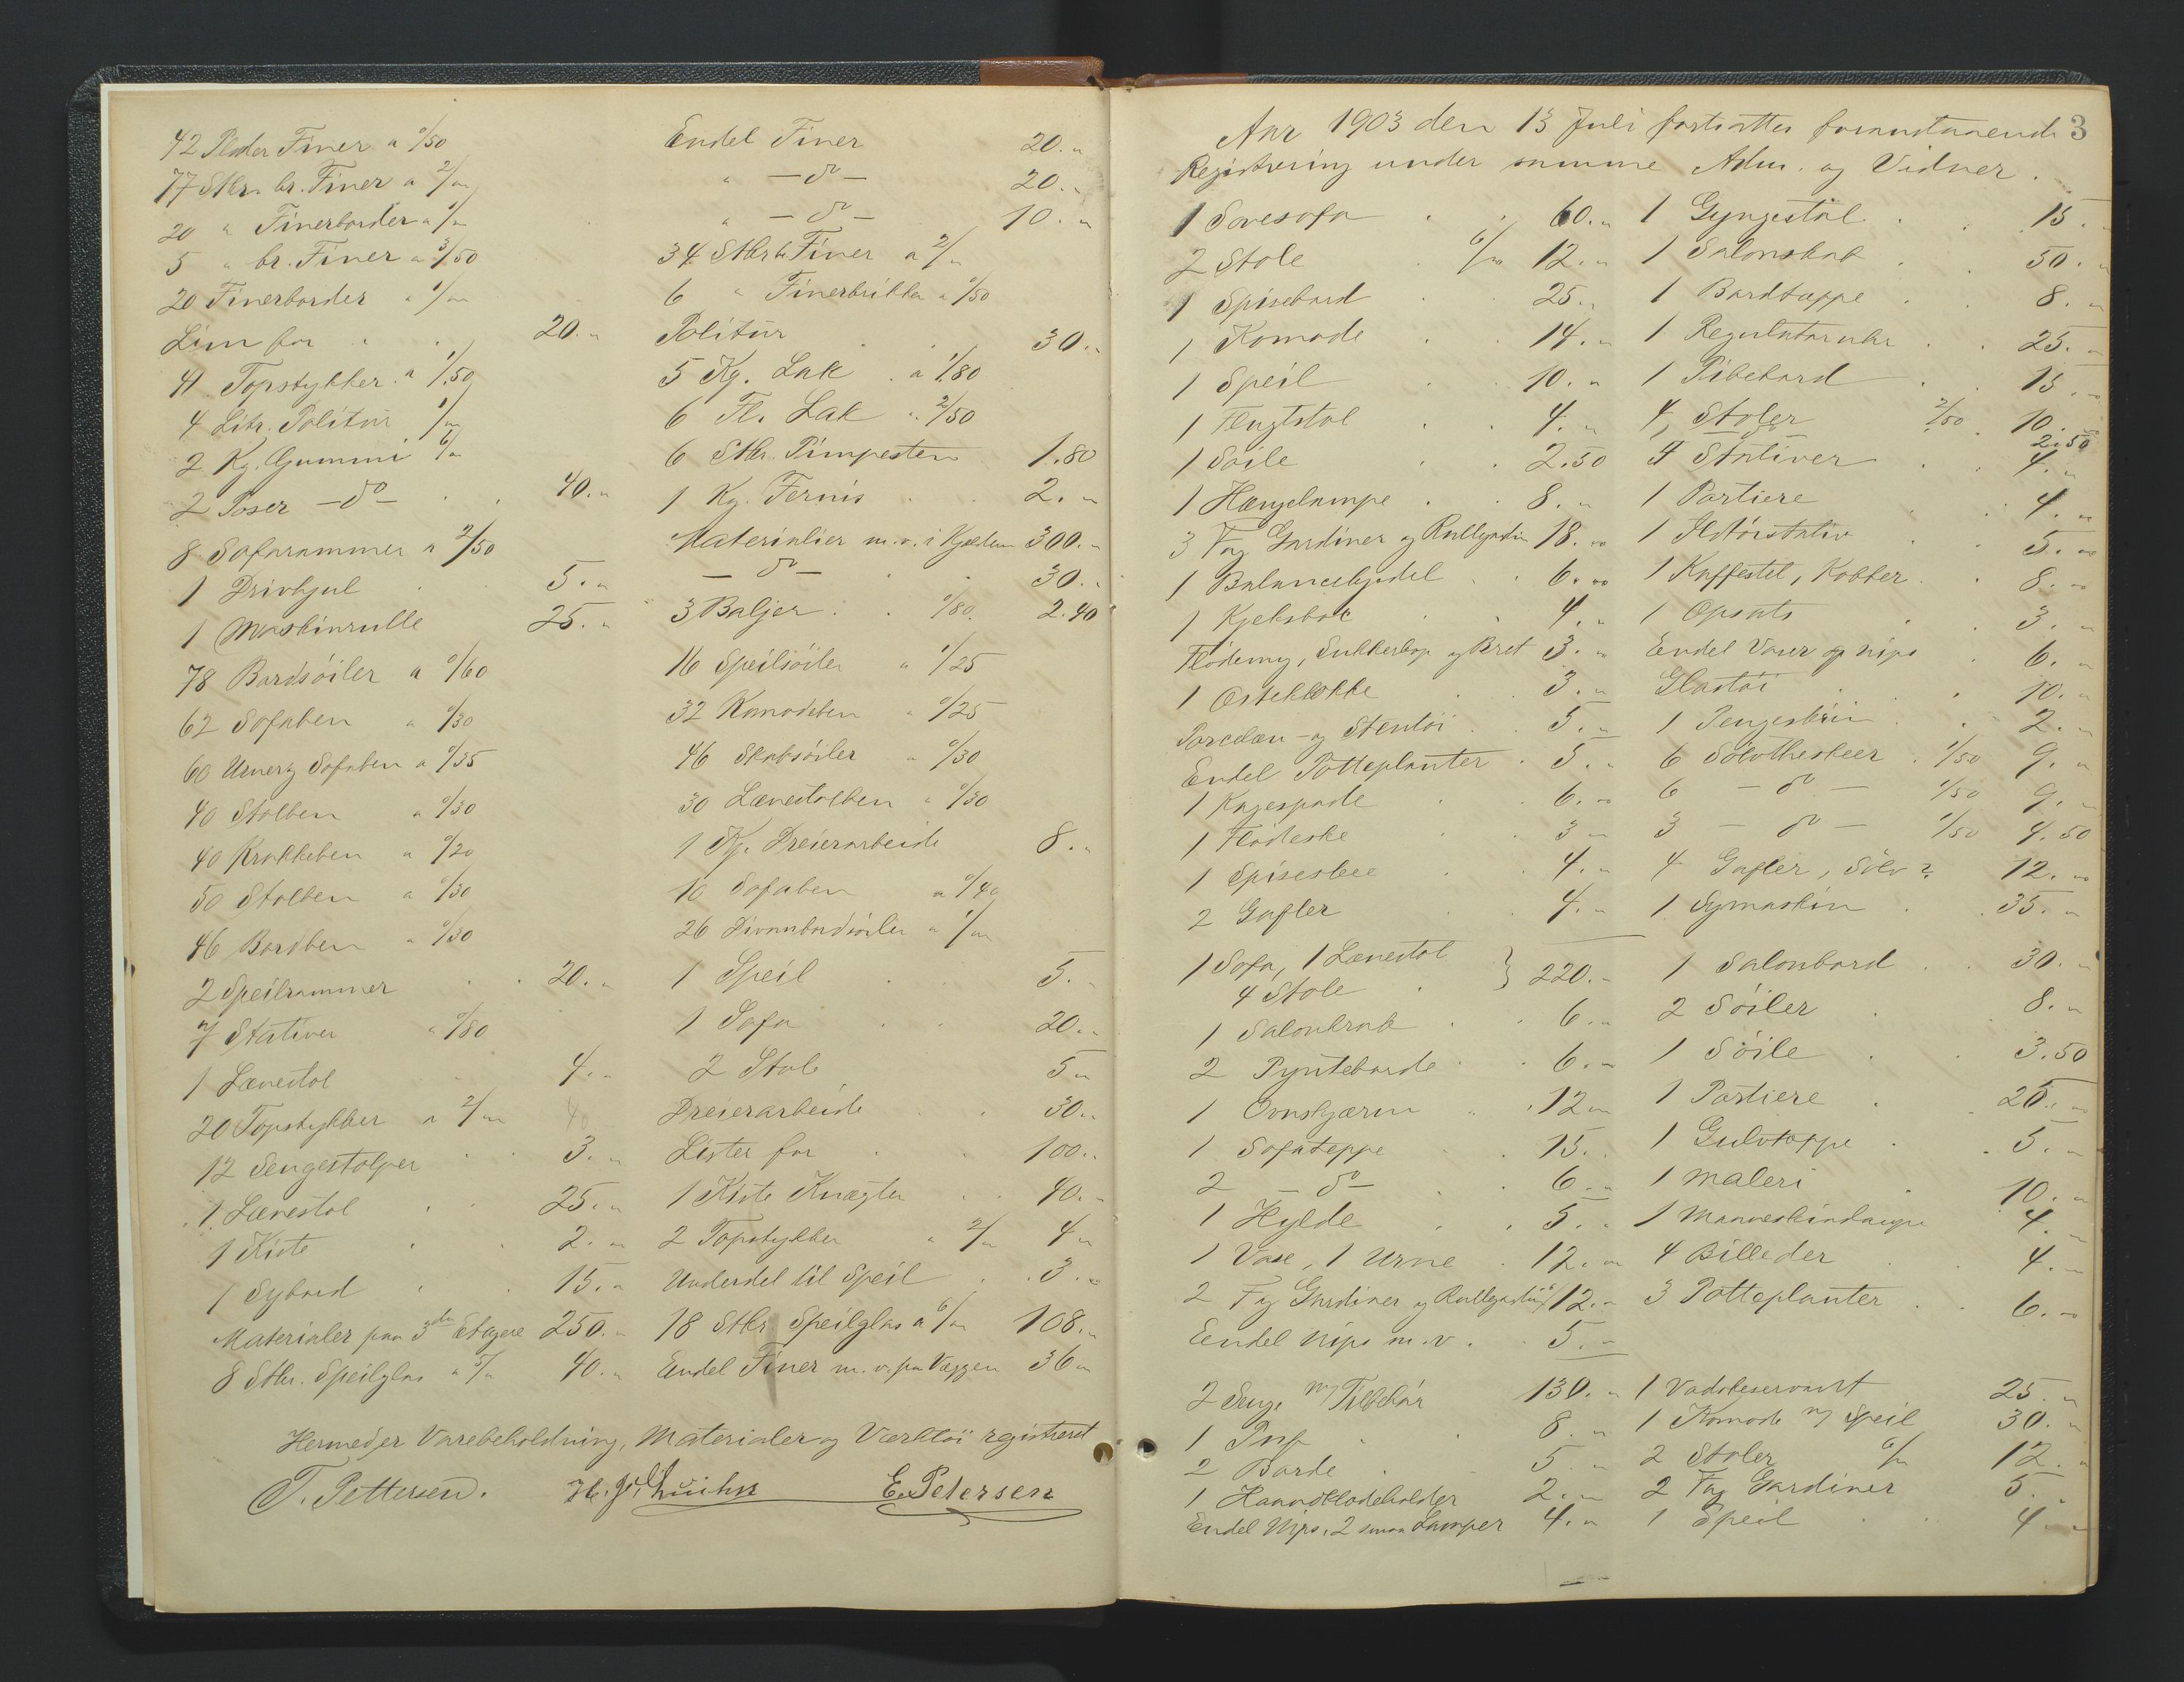 42 Plader Finer a 0/50
77 Stkr. br. Finer a 2/"
20 " Finerborder a 1/"
5 " br. Finer a 3/50
20 Finerborder " 1/"
Lim for . . 20."
41 Topstykker a 1/50
4 Litr. Politur 1/"
2 Kg. Gummi 6/"
2 Poser – do – . . 40."
8 Sofarammer a 2/50
1 Drivhjul . 5."
1 Maskinrulle 25."
78 Bordsöiler a 0/60
62 Sofaben a 0/30
60 Urner og Sofaben a 0/35
40 Stolben a 0/30
40 Krakkeben a 0/20
50 Stolben a 0/30
46 Bordben a 0/30
2 Speilrammer . . 20."
7 Stativer a 0/80
1 Lænestol 4."
20 Topstykker a 2/" 40
12 Sengestolper . . 3."
1 Lænestol . . 25."
1 Kiste . . 2."
1 Sybord . . 15."
Materialer paa 3die Etagere 250."
8 Stkr. Speilglas a 5/" 40."
Endel Finer 20."
" – do – 20."
" – do – 10."
34 Stkr br. Finer a 2/"
6 " Finerbrikker a 0/50
Politur . . 30."
5 Kg. Lak . a 1/80
6 Fl. Lak " 2/50
6 Stkr. Pimpesten 1.80
1 Kg. Fernis . . 2."
Materialier m.v. i Kjælderen 300."
– do – . . 30."
3 Baljer . . 0/80 2.40
16 Speilsöiler a 1/25
32 Komodeben " 0/25
46 Skabsöiler " 0/30
30 Lænestolben " 0/30
1 Kg. Dreierarbeide 8."
10 Sofaben a 0/40
26 Divanbordsöiler a 1/"
1 Speil . . 5."
1 Sofa . . 20."
2 Stole 5"
Dreierarbeide . . 30."
Lister for . . 100."
1 Kiste Knægter . . 40."
2 Topstykker " 2/" 4"
Underdel til Speil . . 3."
18 Stkr. Speilglas a 6/" 108."
Endel Finer m.v. paa Væggen 36"
Hermed er Varebeholdning, Materialer og Værktöi registreret
T. Pettersen. E. Petersen
3
Aar 1903 den 13 Juli fortsattes foranstaaende
Registrering under samme Adm. og Vidner.
1 Sovesofa . . 60."
2 Stole . 6/" 12."
1 Spisebord . . 25"
1 Komode . . 14."
1 Speil . . 10."
1 Flugtstol . . 4."
1 Söile . . 2.50
1 Hængelampe . . 8."
3 Fag Gardiner og Rullegardin 18."
1 Balancebjedel . . 6."
1 Kjeksbox . . 4."
Flödemug, Sukkerkop og Bret 3."
1 Osteklokke . . 3."
Porcelæn- og Stentöi . . 5."
Endel Potteplanter . 5."
1 Kagespade . . 6."
1 Flödeske . . 3"
1 Spiseskee . . 4."
2 Gafler . . 4."
1 Sofa, 1 Lænestol
4 Stole . } 220.-
1 Salonkrak . . 6."
2 Pynteborde . . 6."
1 Ovnskjærm . . 12"
1 Sofateppe . . 15."
2 – do – . . 6."
1 Hylde . . 5."
1 Vase, 1 Urne . 12."
2 Fag Gardiner og Rullegardin 12."
Endel Nips m.v. . . 5."
2 Senge m/ Tilbehör 130."
1 Puf . . 8."
2 Borde . . 5."
1 Haandklædeholder 2."
Endel Nips, 2 smaa Lamper 4."
1 Gyngestol . . 15."
1 Salonskab . . 50."
1 Bordteppe . . 8."
1 Regulatoruhr . . 25."
1 Pibebord . . 15."
4 Stoler 2/50 10."
2.50
4 Stativer . . 4."
1 Portiere . . 4."
1 Ildtöistativ . . 5."
1 Kaffestel, Kobber . . 8."
1 Opsats . . 3."
Endel Vaser og nips . 6."
Glastöi . . 10."
1 Pengeskrin . . 2."
6 Sölvtheskeer . 1/50 9."
6 – do – 1/50 9."
3 – do – 1/50 4.50
4 Gafler, Sölv? 12."
1 Symaskin . . 35."
1 Salonbord . . 30."
2 Söiler . . 8."
1 Söile . . 3.50
1 Portiere . . 20."
1 Gulvteppe . . 5."
1 Maleri . 10."
4."
4 Billeder . 4."
3 Potteplanter . . 6."
1 Vaskeservant 25."
1 Komode m/ Speil 30."
2 Stoler 6/" 12."
2 Fag Gardiner 5."
1 Speil . . 4."